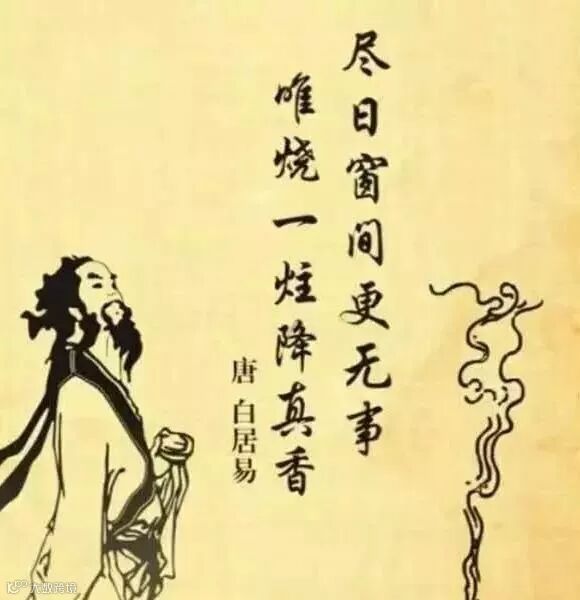 尽日窗间更无事
唯烧一炷降真香
唐 白居易
大数跨境